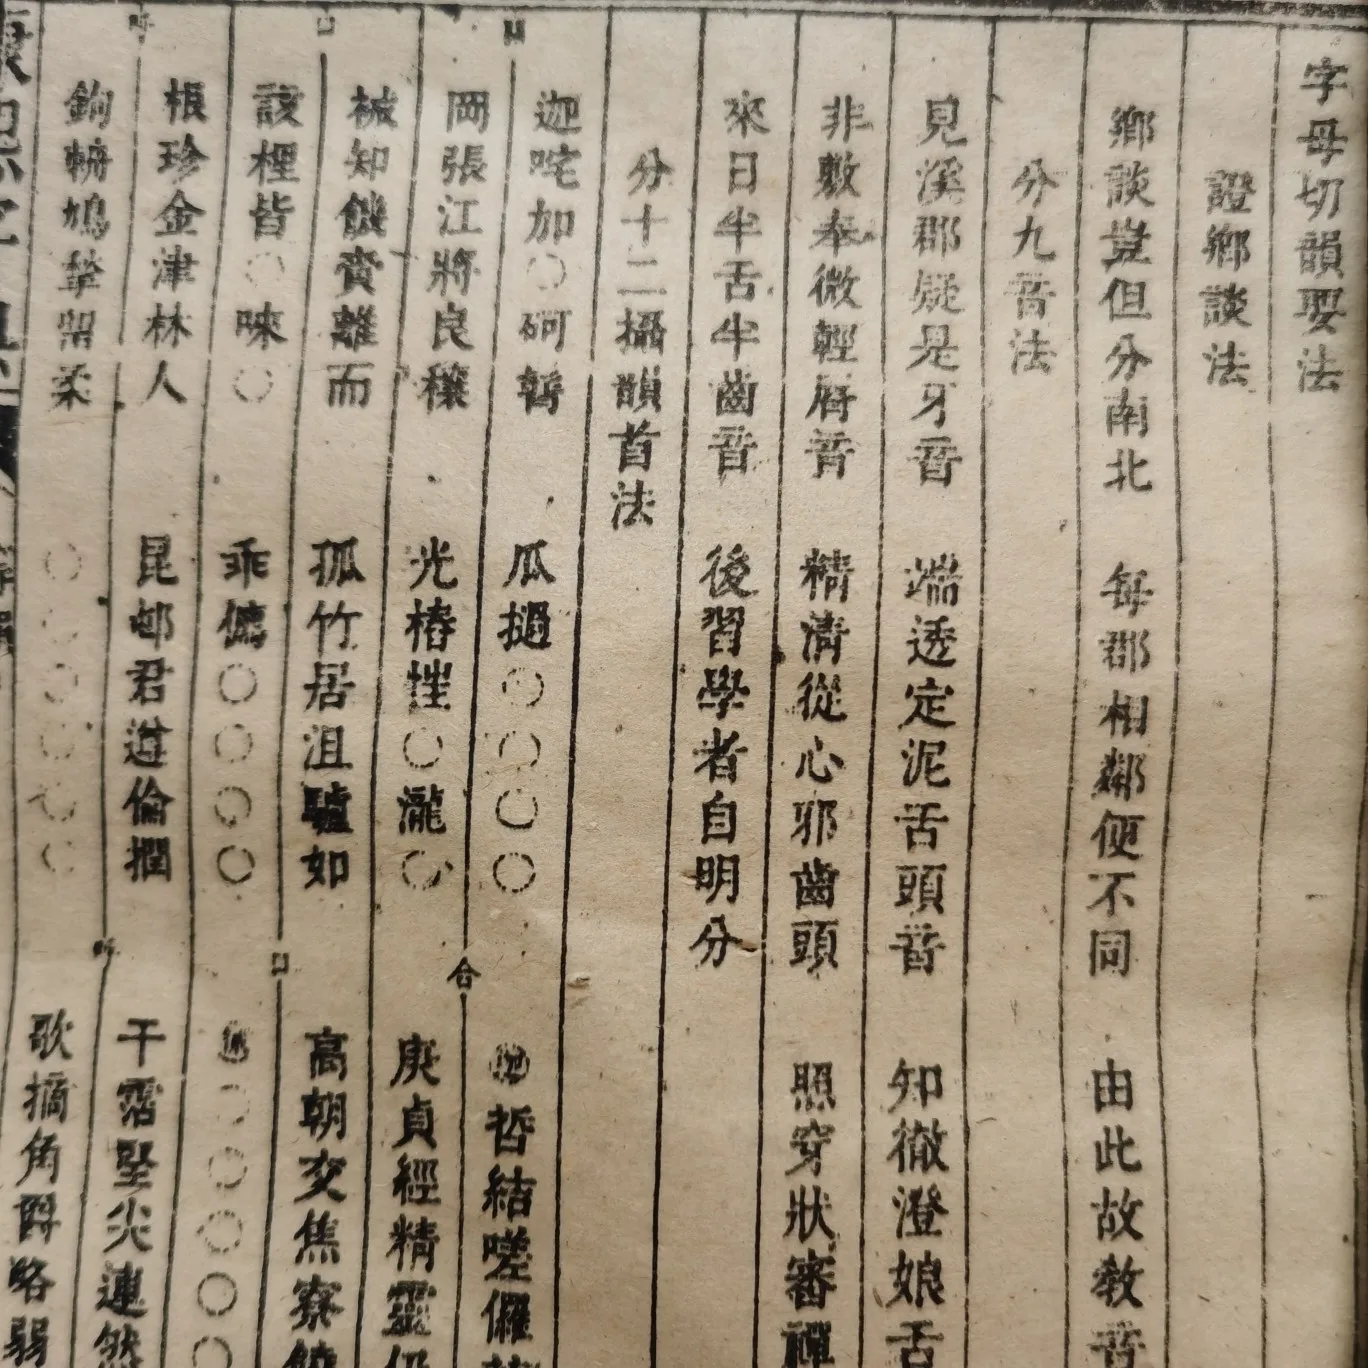 字母切韻要法
證鄉談法
鄉談豈但分南北 每郡相鄰便不同 由此故教音
分九音法
見溪郡疑是牙音 端透定泥舌頭音 知徹澄娘舌
非敷奉微輕唇音 精清從心邪齒頭 照穿狀審禪
來日半舌半齒音 後習學者自明分
分十二攝韻首法
迦咤加〇砢 瓜撾〇〇〇〇 哲結嗟
岡張江將良穰 光樁〇瀧〇 庚貞經精靈
祴知饑賫離而 孤竹居沮驢如 高朝交焦寮
該皆〇唻〇 乖〇〇〇〇 〇〇〇〇〇
根珍金津林人 昆邨君遵倫犉 干霑堅尖連然
鉤輈鳩揫畱柔 〇〇〇〇〇〇 歌摘角爵略弱